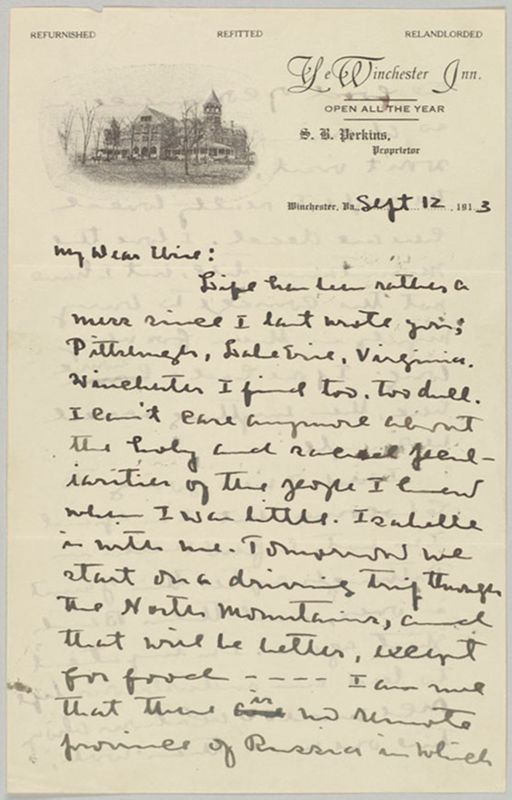 REFURNISHED REFITTED RELANDLORDED
Ye Winchester Inn.
OPEN ALL THE YEAR
S. B. Perkins,
Proprietor
Winchester, Va. Sept 12, 1913
My Dear Elsie:
Life has been rather a
mess since I last wrote you;
Pittsburgh, Lake Erie, Virginia.
Winchester I find too, too dull.
I can't care anymore about
the holy and sacred pecul-
iarities of the people I knew
when I was little. Isabelle
is with me. Tomorrow we
start on a driving trip through
the North Mountains, and
that will be better, except
for food ---- I am sure
that there is no remote
province of Russia in which